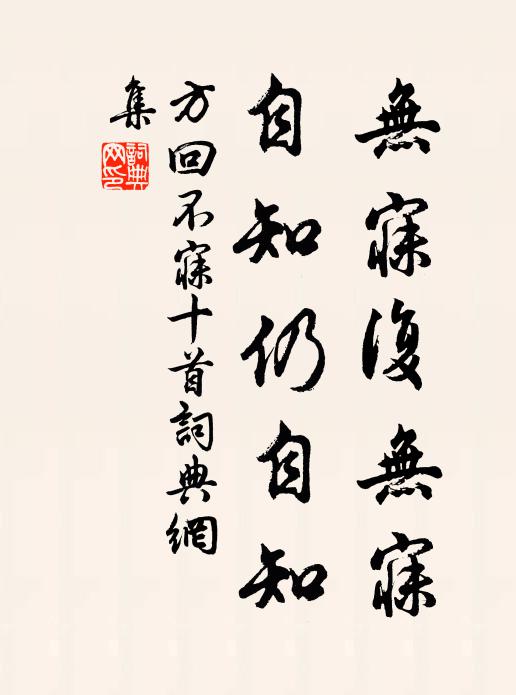 無寐復無寐
自知仍自知
方回不寐十首詞典網
集
詞典
网印